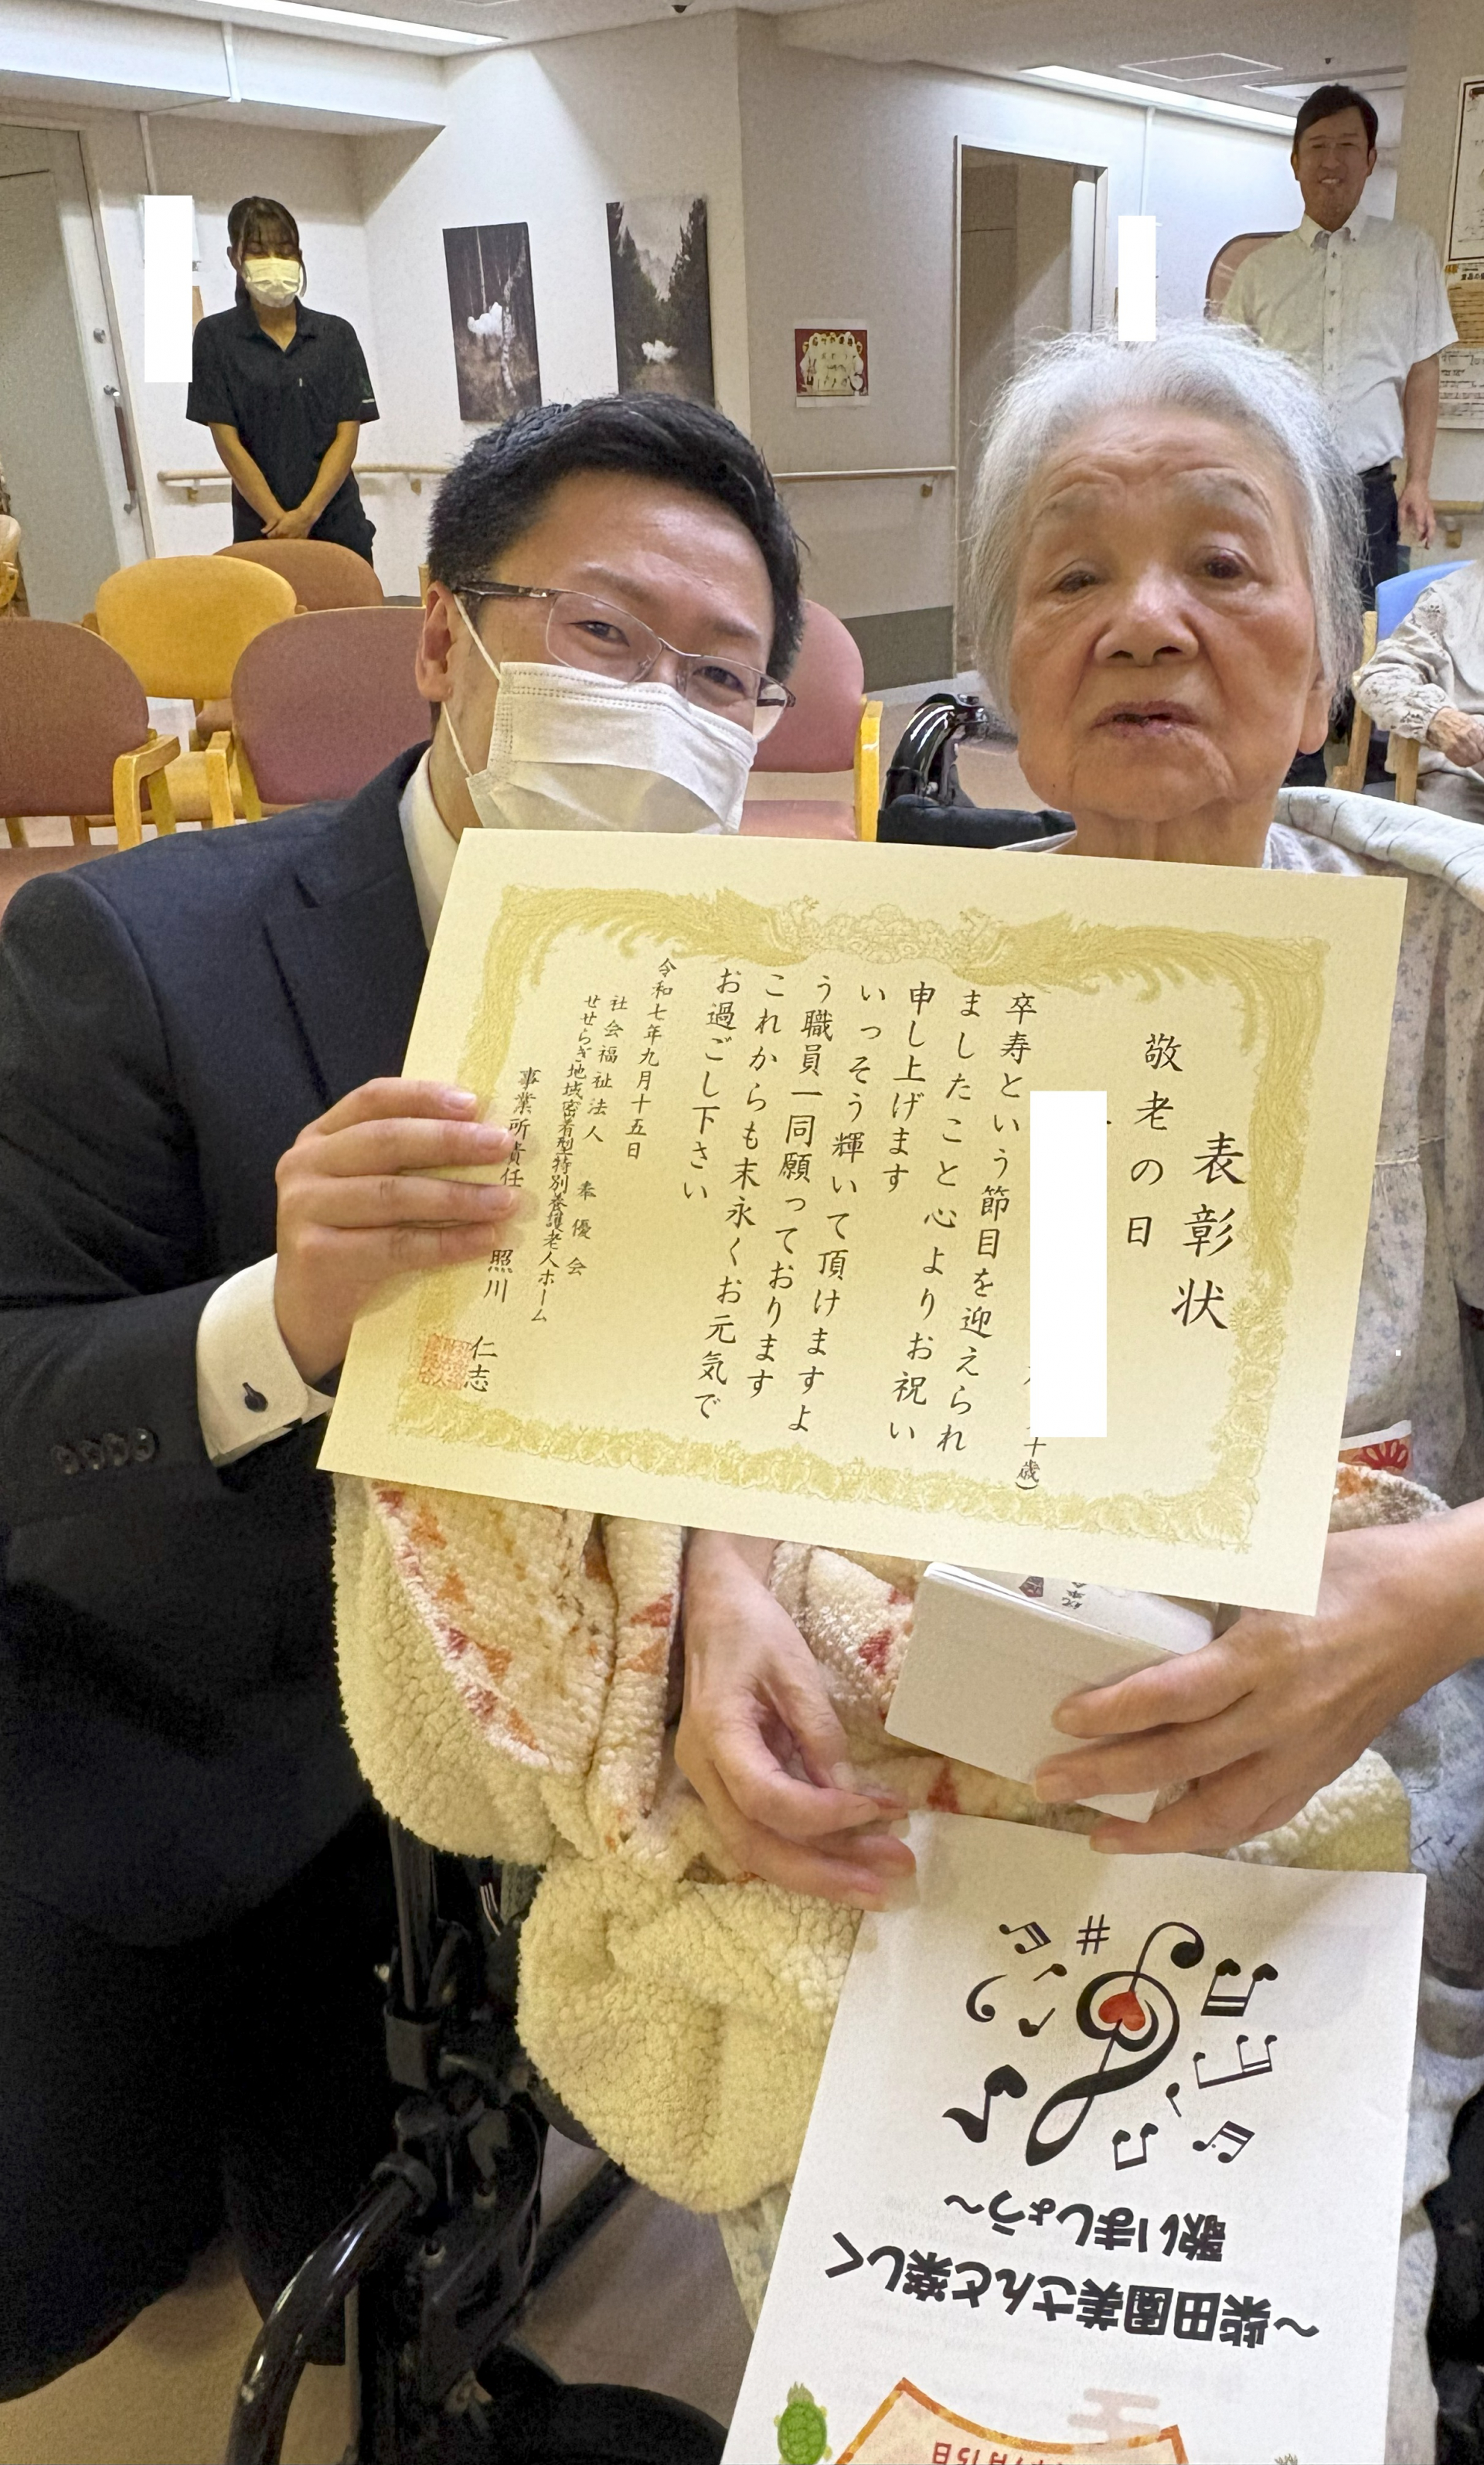 表彰状
敬老の日
十歳)
卒寿という節目を迎えられ
ましたこと心よりお祝い
申し上げます
いっそう輝いて頂けますよ
う職員一同願っております
これからも末永くお元気で
お過ごし下さい
令和七年九月十五日
社会福祉法人 奉優会
せせらぎ地域密着型特別養護老人ホーム
事業所責任 照川 仁志
～柴田園美さんと楽しく
歌いましょう～
月15日